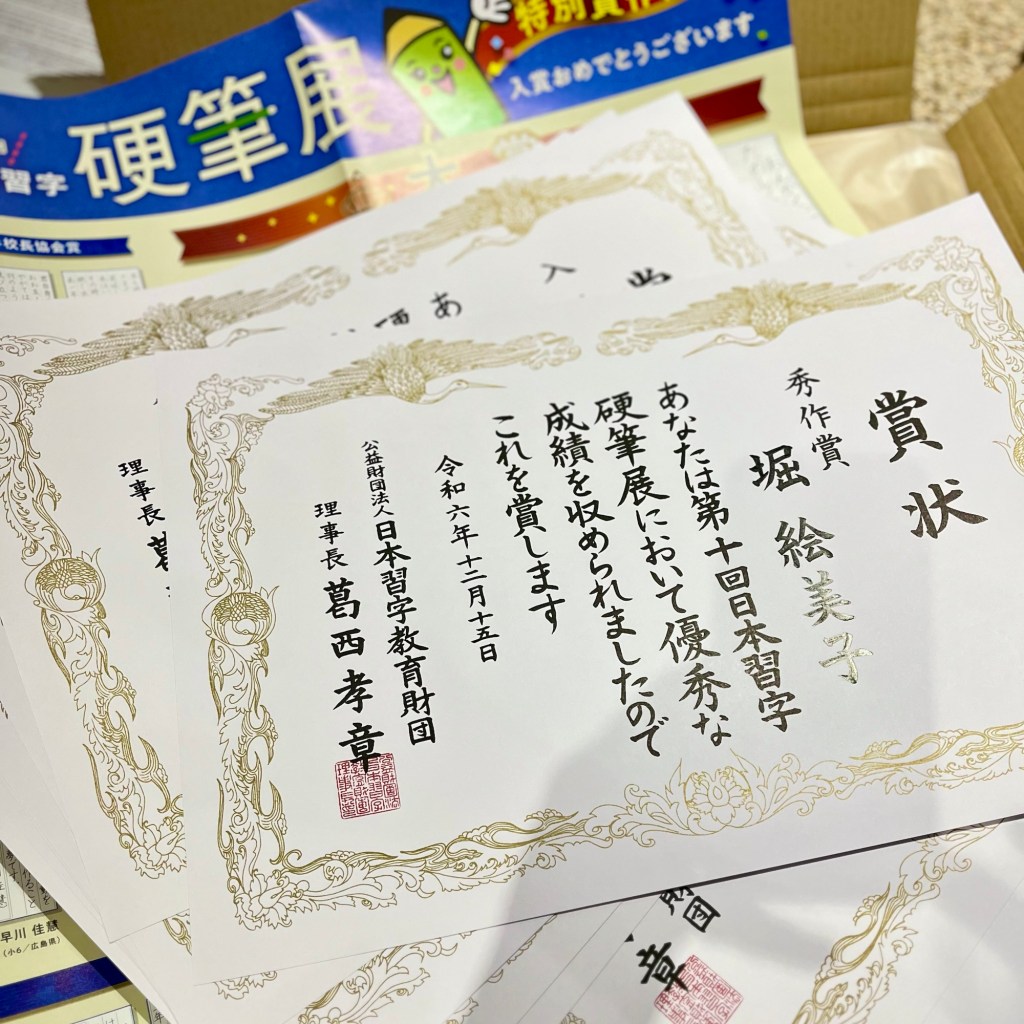 特別賞作
入賞おめでとうございます
習字
硬筆展
校長協会賞
賞状
秀作賞
堀 絵美子
あなたは第十回日本習字
硬筆展において優秀な
成績を収められましたので
これを賞します
令和六年十二月十五日
公益財団法人日本習字教育財団
理事長 葛西孝章
入
あ
理事長 葛
財団
章
早川 佳慧
(小6/広島県)